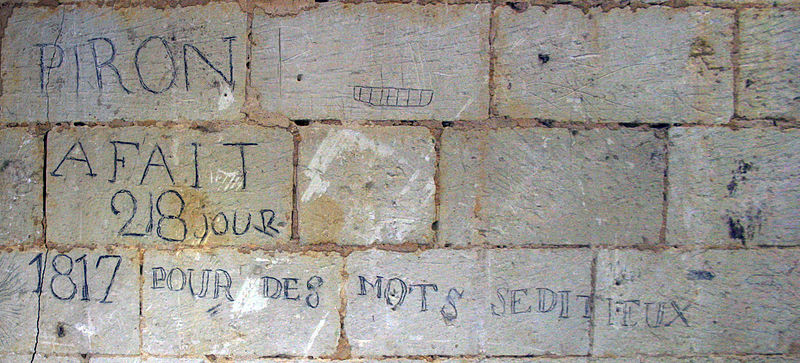 PIRON
A FAIT
218 JOUR
1817 POUR DES MOTS SEDITIEUX